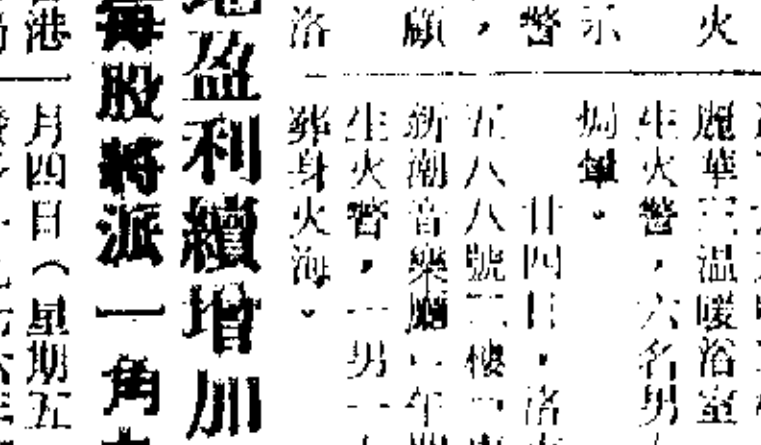 火
麗華三温暖浴室
生火警，六名男
焗暈。
示
警
廿四日，洛
，
五八八號二樓
顧
新潮音樂廳
生火警，一男一
洛
葬身火海。
盈利續增加
每股將派一角
港
月四日（星期五